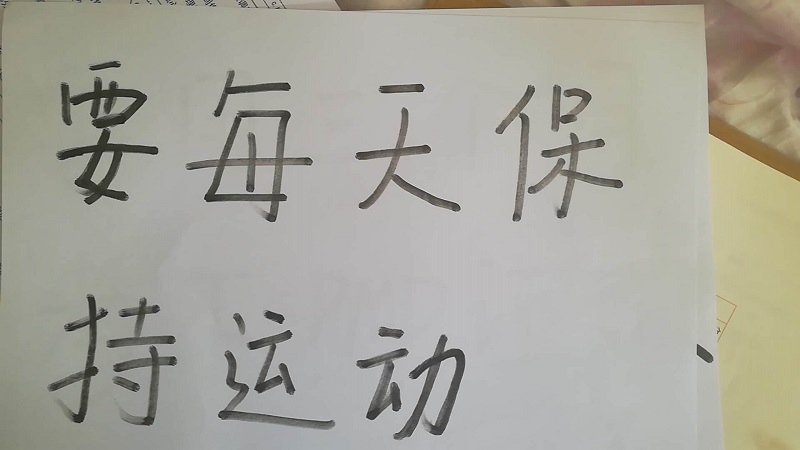 要每天保
持运动